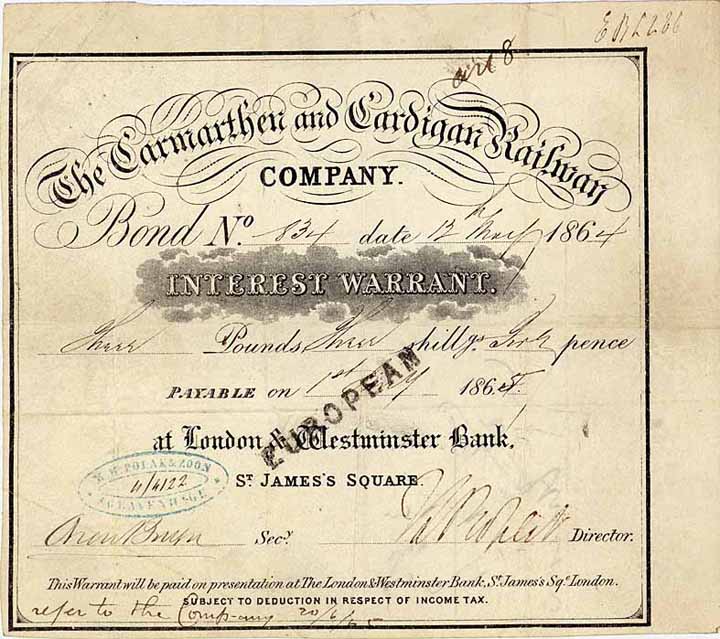 art 8
The Carmarthen and Cardigan Railway
COMPANY.
Bond No. 834 date 12th May 1864
INTEREST WARRANT.
Three Pounds, Three shillgs. pence
PAYABLE on 1st 1865
EUROPEAN
at London & Westminster Bank,
ST. JAMES'S SQUARE.
POLAK & ZOON
11/4122
S'GRAVENHAGE
Secy. Director.
This Warrant will be paid on presentation at The London & Westminster Bank, St. James's Sqe. London.
SUBJECT TO DEDUCTION IN RESPECT OF INCOME TAX.
refer to the Company 20/6/65